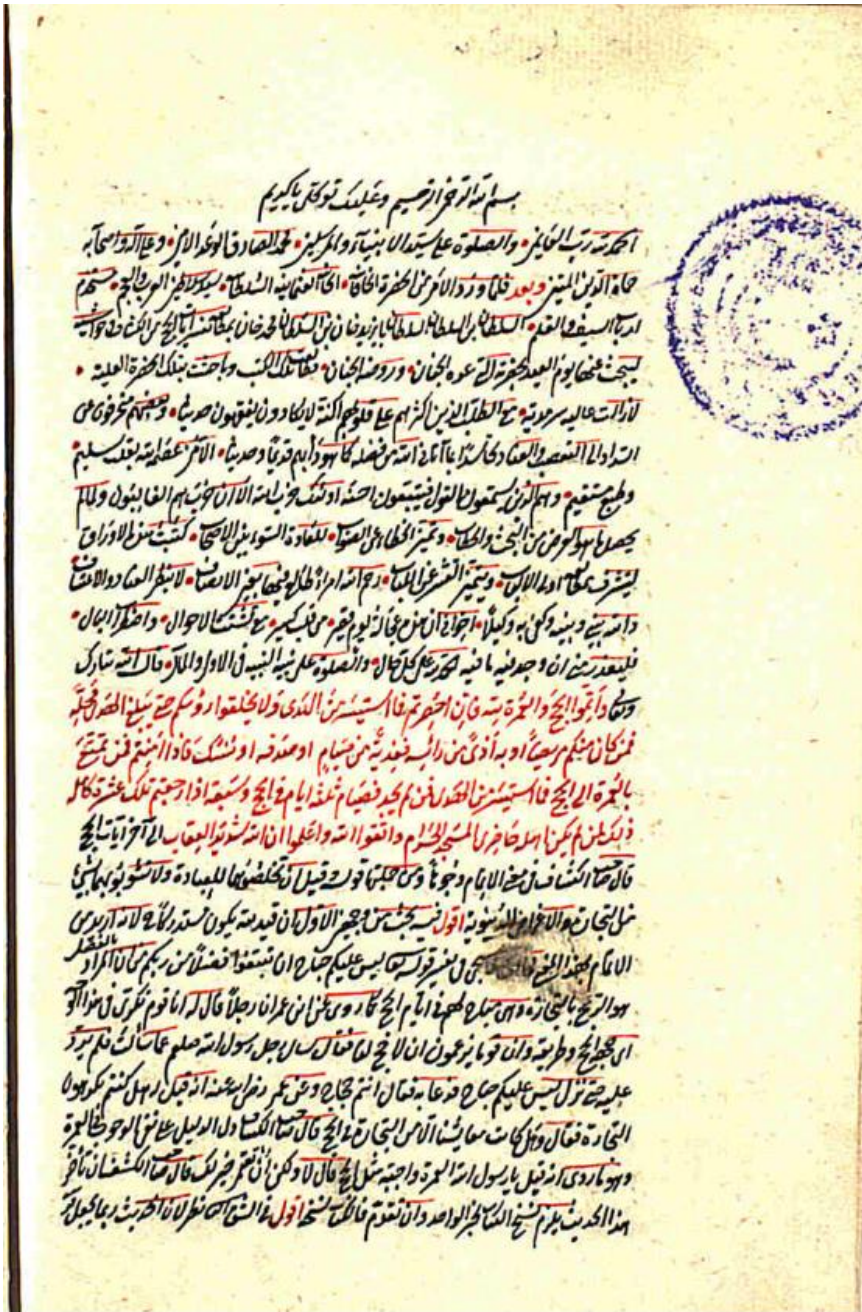 بسم الله الرحمن الرحيم وعليك توكلي يا كريم
الحمد لله رب العالمين والصلوة على سيد الانبياء والمرسلين محمد الصادق الوعد الامين وعلى اله واصحابه
حماة الدين المتين وبعد فلما ورد الامر من الحضرة السلطان سيد سلاطين العرب والعجم مستخدم
ارباب السيف والقلم السلطان بن السلطان السلطان بايزيد خان بن السلطان محمد خان تفسير آيات الحج من الكشاف
ليبحث عنها يوم العيد بحضرة الجنان وروضة الجنان تلك الكتب وباحثت بتلك الحضرة العلية
لا زالت عالية سرمدية مع الطلبة الذين اكثرهم على قلوبهم اكنة لا يكادون يفقهون حديثا وبعضهم منحرفون عن
السداد الى التعصب والعناد ما آتاني الله من فضله كما هو دأبهم قديما وحديثا الا من الله بقلب سليم
وطبع مستقيم وهم الذين يستمعون القول فيتبعون احسنه اولئك حزب الله الا ان حزب الله هم الغالبون ولما لم
يحصل ما هو الغرض من البحث والخطاب وتميز الخطاء عن الصواب للعادة السوء بين الاصحاب كتبت هذه الاوراق
ليتشرف اولى الالباب ويتميز القشر عن اللباب رحم الله امرأ طالع فيها بعين الانصاف لا بنظر العناد والاعتساف
والله بيني وبينه وكفى به وكيلا هذه عجالة يوم من قلب كسير مع تشتت الاحوال واضطراب البال
فليعذرني ان وجد فيه ما فيه الحمد لله على كل حال والصلوة على نبيه النبيه في الاول والمآل قال الله تبارك
وتعالى واتموا الحج والعمرة لله فان احصرتم فما استيسر من الهدى ولا تحلقوا رؤسكم حتى يبلغ الهدى محله
فمن كان منكم مريضا او به اذى من رأسه ففدية من صيام او صدقة او نسك فاذا امنتم فمن تمتع
بالعمرة الى الحج فما استيسر من الهدى فمن لم يجد فصيام ثلثة ايام في الحج وسبعة اذا رجعتم تلك عشرة كاملة
ذلك لمن لم يكن اهله حاضرى المسجد الحرام واتقوا الله واعلموا ان الله شديد العقاب الى آخر آيات الحج
قال صاحب الكشاف في معنى الاتمام وجوها ومن جملتها قوله وقيل ان تخلصوهما للعبادة ولا تشوبوهما بشئ
من التجارة والاغراض الدنيوية اقول فيه بحث من وجهين الاول ان قيد لله يكون مستدركا لانه اريد من
الاتمام بهذا المعنى في تفسير قوله تعالى ليس عليكم جناح ان تبتغوا فضلا من ربكم من ان المراد بالفضل
هو الربح بالتجارة وهى مباح لهم في ايام الحج كما روى عن ابن عمر ان رجلا قال له انا قوم نكرى في هذا الوجه
اى في الحج وطريقه وان قوما يزعمون ان لا حج لنا فقال سال رجل رسول الله صلعم عما سألت فلم يرد
عليه حتى نزل ليس عليكم جناح فدعا به فقال انتم حجاج وعن عمر رضى الله عنه انه قيل له هل كنتم تكرهون
التجارة فقال وهل كانت معايشنا الا من التجارة في الحج قال صاحب الكشاف دل الدليل على نفى الوجوب العمرة
وهو ما روى انه قيل يا رسول الله العمرة واجبة مثل الحج قال لا ولكن ان تعتمر خير لك قال صاحب الكشف ان تأخر
هذا الحديث يلزم نسخ الكتاب بخبر الواحد وان تقدم فالكتاب نسخه اقول في الشق نظر لان الحديث ربما يجعل